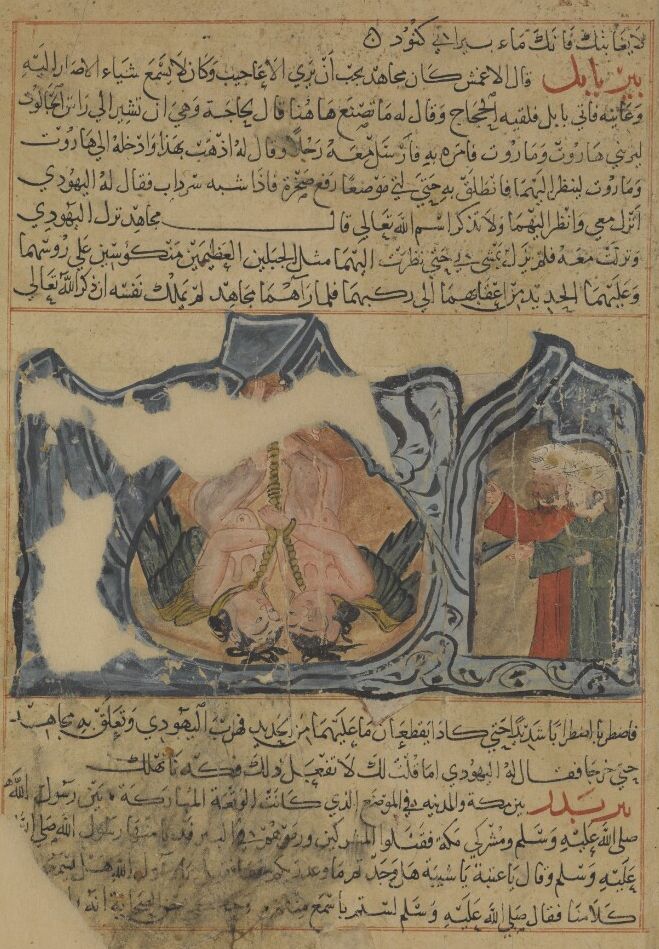 لا يغاثنك فانك ماء بير ابي كنود
بير بابل قال الاعمش كان مجاهد يحب ان يري الاعاجيب وكان لا يسمع شياء الا صار اليه
وعاينه فاتي بابل فلقيه الحجاج وقال له ما تصنع هاهنا قال لحاجة وهي ان تشير الي راس الجالوت
ليريني هاروت وماروت فامره به فارسل معه رجلا وقال له اذهب بهذا وادخله الي هاروت
وماروت لينظر اليهما فانطلق به حتي اتي موضعا رفع صخرة فاذا شبه سرداب فقال له اليهودي
انزل معي وانظر اليهما ولا تذكر اسم الله تعالي قال مجاهد نزل اليهودي
ونزلت معه فلم نزل نمشي حتي نظرت اليهما مثل الجبلين العظيمين منكوسين علي روسهما
وعليهما الحديد من اعقابهما الي ركبهما فلما رآهما مجاهد لم يملك نفسه ان ذكر الله تعالي
فاضطربا اضطرابا شديدا حتي كادا يقطعان ما عليهما من الحديد فهرب اليهودي وتعلق به مجاهد
حتي خرجا فقال له اليهودي اما قلت لك لا تفعل ذلك فكدنا نهلك
بير بدر بين مكة والمدينه في الموضع الذي كانت الوقعة المباركة بين رسول الله
صلي الله عليه وسلم ومشركي مكة فقتلوا المشركين ورموهم في البير فدنا منها رسول الله صلي الله
عليه وسلم وقال يا عتبة يا شيبة هل وجدتم ما وعد ربكم رسول الله هل
كلامنا فقال صلي الله عليه وسلم لستم باسمع منهم